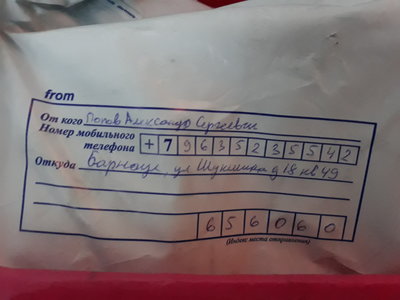 from
От кого Попов Александр Сергеевич
Номер мобильного
телефона +79635235542
Откуда Барнаул, ул Шукшина д 18 кв 49
656060
(Индекс места отправления)